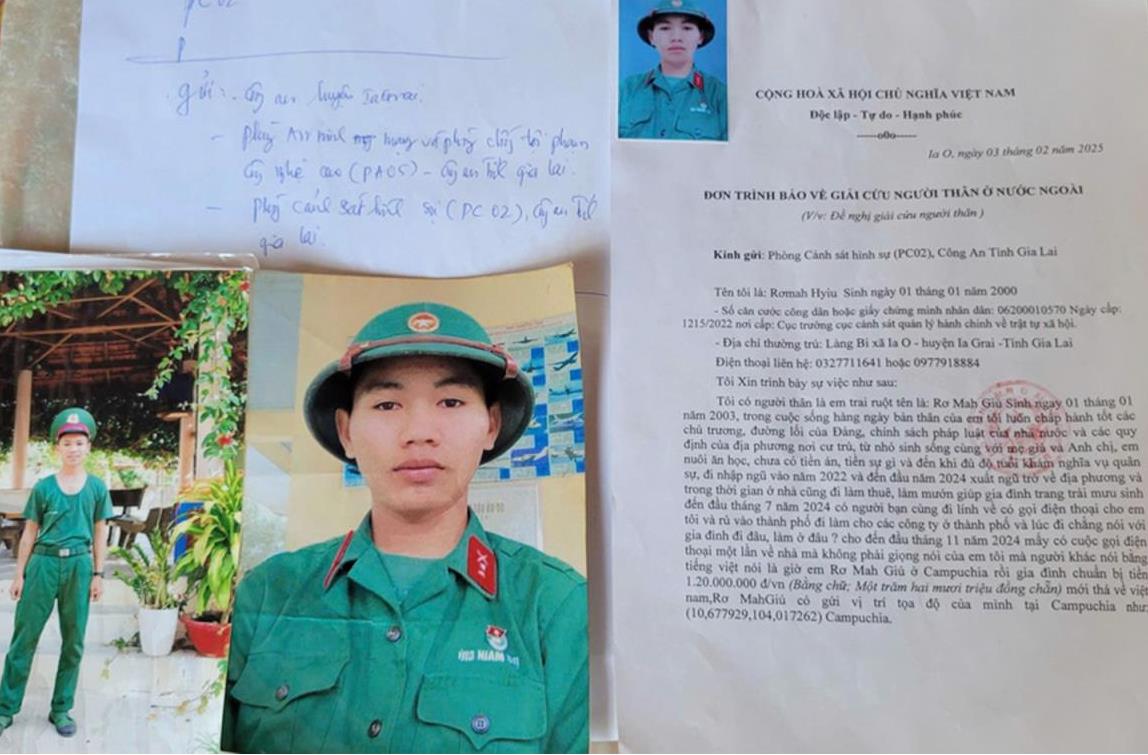 PC02
gửi: - Công an huyện IaGrai.
- phòng An ninh mạng và phòng chống tội phạm
Công nghệ cao (PA05) - Công an Tỉnh gia lai.
- phòng cảnh sát hình sự (PC02), Công an Tỉnh
gia lai.
CỘNG HOÀ XÃ HỘI CHỦ NGHĨA VIỆT NAM
Độc lập - Tự do - Hạnh phúc
-----o0o-----
Ia O, ngày 03 tháng 02 năm 2025
ĐƠN TRÌNH BÁO VỀ GIẢI CỨU NGƯỜI THÂN Ở NƯỚC NGOÀI
(V/v: Đề nghị giải cứu người thân )
Kính gửi: Phòng Cảnh sát hình sự (PC02), Công An Tỉnh Gia Lai
Tên tôi là: Rơmah Hyiu Sinh ngày 01 tháng 01 năm 2000
- Số căn cước công dân hoặc giấy chứng minh nhân dân: 06200010570 Ngày cấp:
1215/2022 nơi cấp: Cục trưởng cục cảnh sát quản lý hành chính về trật tự xã hội.
- Địa chỉ thường trú: Làng Bi xã Ia O - huyện Ia Grai -Tỉnh Gia Lai
Điện thoại liên hệ: 0327711641 hoặc 0977918884
Tôi Xin trình bày sự việc như sau:
Tôi có người thân là em trai ruột tên là: Rơ Mah Giú Sinh ngay 01 tháng 01
năm 2003, trong cuộc sống hàng ngày bản thân của em tôi luôn chấp hành tốt các
chủ trương, đường lối của Đảng, chính sách pháp luật của nhà nước và các quy
định của địa phương nơi cư trú, từ nhỏ sinh sống cùng với mẹ già và Anh chị, em
nuôi ăn học, chưa có tiền án, tiền sự gì và đến khi đủ độ tuổi khám nghĩa vụ quân
sự, đi nhập ngũ vào năm 2022 và đến đầu năm 2024 xuất ngũ trở về địa phương và
trong thời gian ở nhà cũng đi làm thuê, làm mướn giúp gia đình trang trải mưu sinh
đến đầu tháng 7 năm 2024 có người bạn cùng đi lính về có gọi điện thoại cho em
tôi và rủ vào thành phố đi làm cho các công ty ở thành phố và lúc đi chẳng nói với
gia đình đi đâu, làm ở đâu ? cho đến đầu tháng 11 năm 2024 mấy có cuộc gọi điện
thoại một lần về nhà mà không phải giọng nói của em tôi mà người khác nói bằng
tiếng việt nói là giờ em Rơ Mah Giú ở Campuchia rồi gia đình chuẩn bị tiền
1.20.000.000 đ/vn (Bằng chữ; Một trăm hai mươi triệu đồng chẵn) mới thả về việt
nam,Rơ MahGiú có gửi vị trí tọa độ của mình tại Campuchia như:
(10,677929,104,017262) Campuchia.